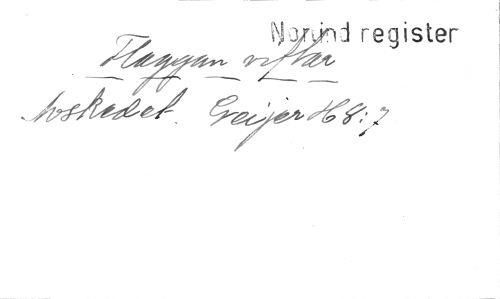 Norlind register
Flaggan viftar
Avskedet. Geijer H 8:7